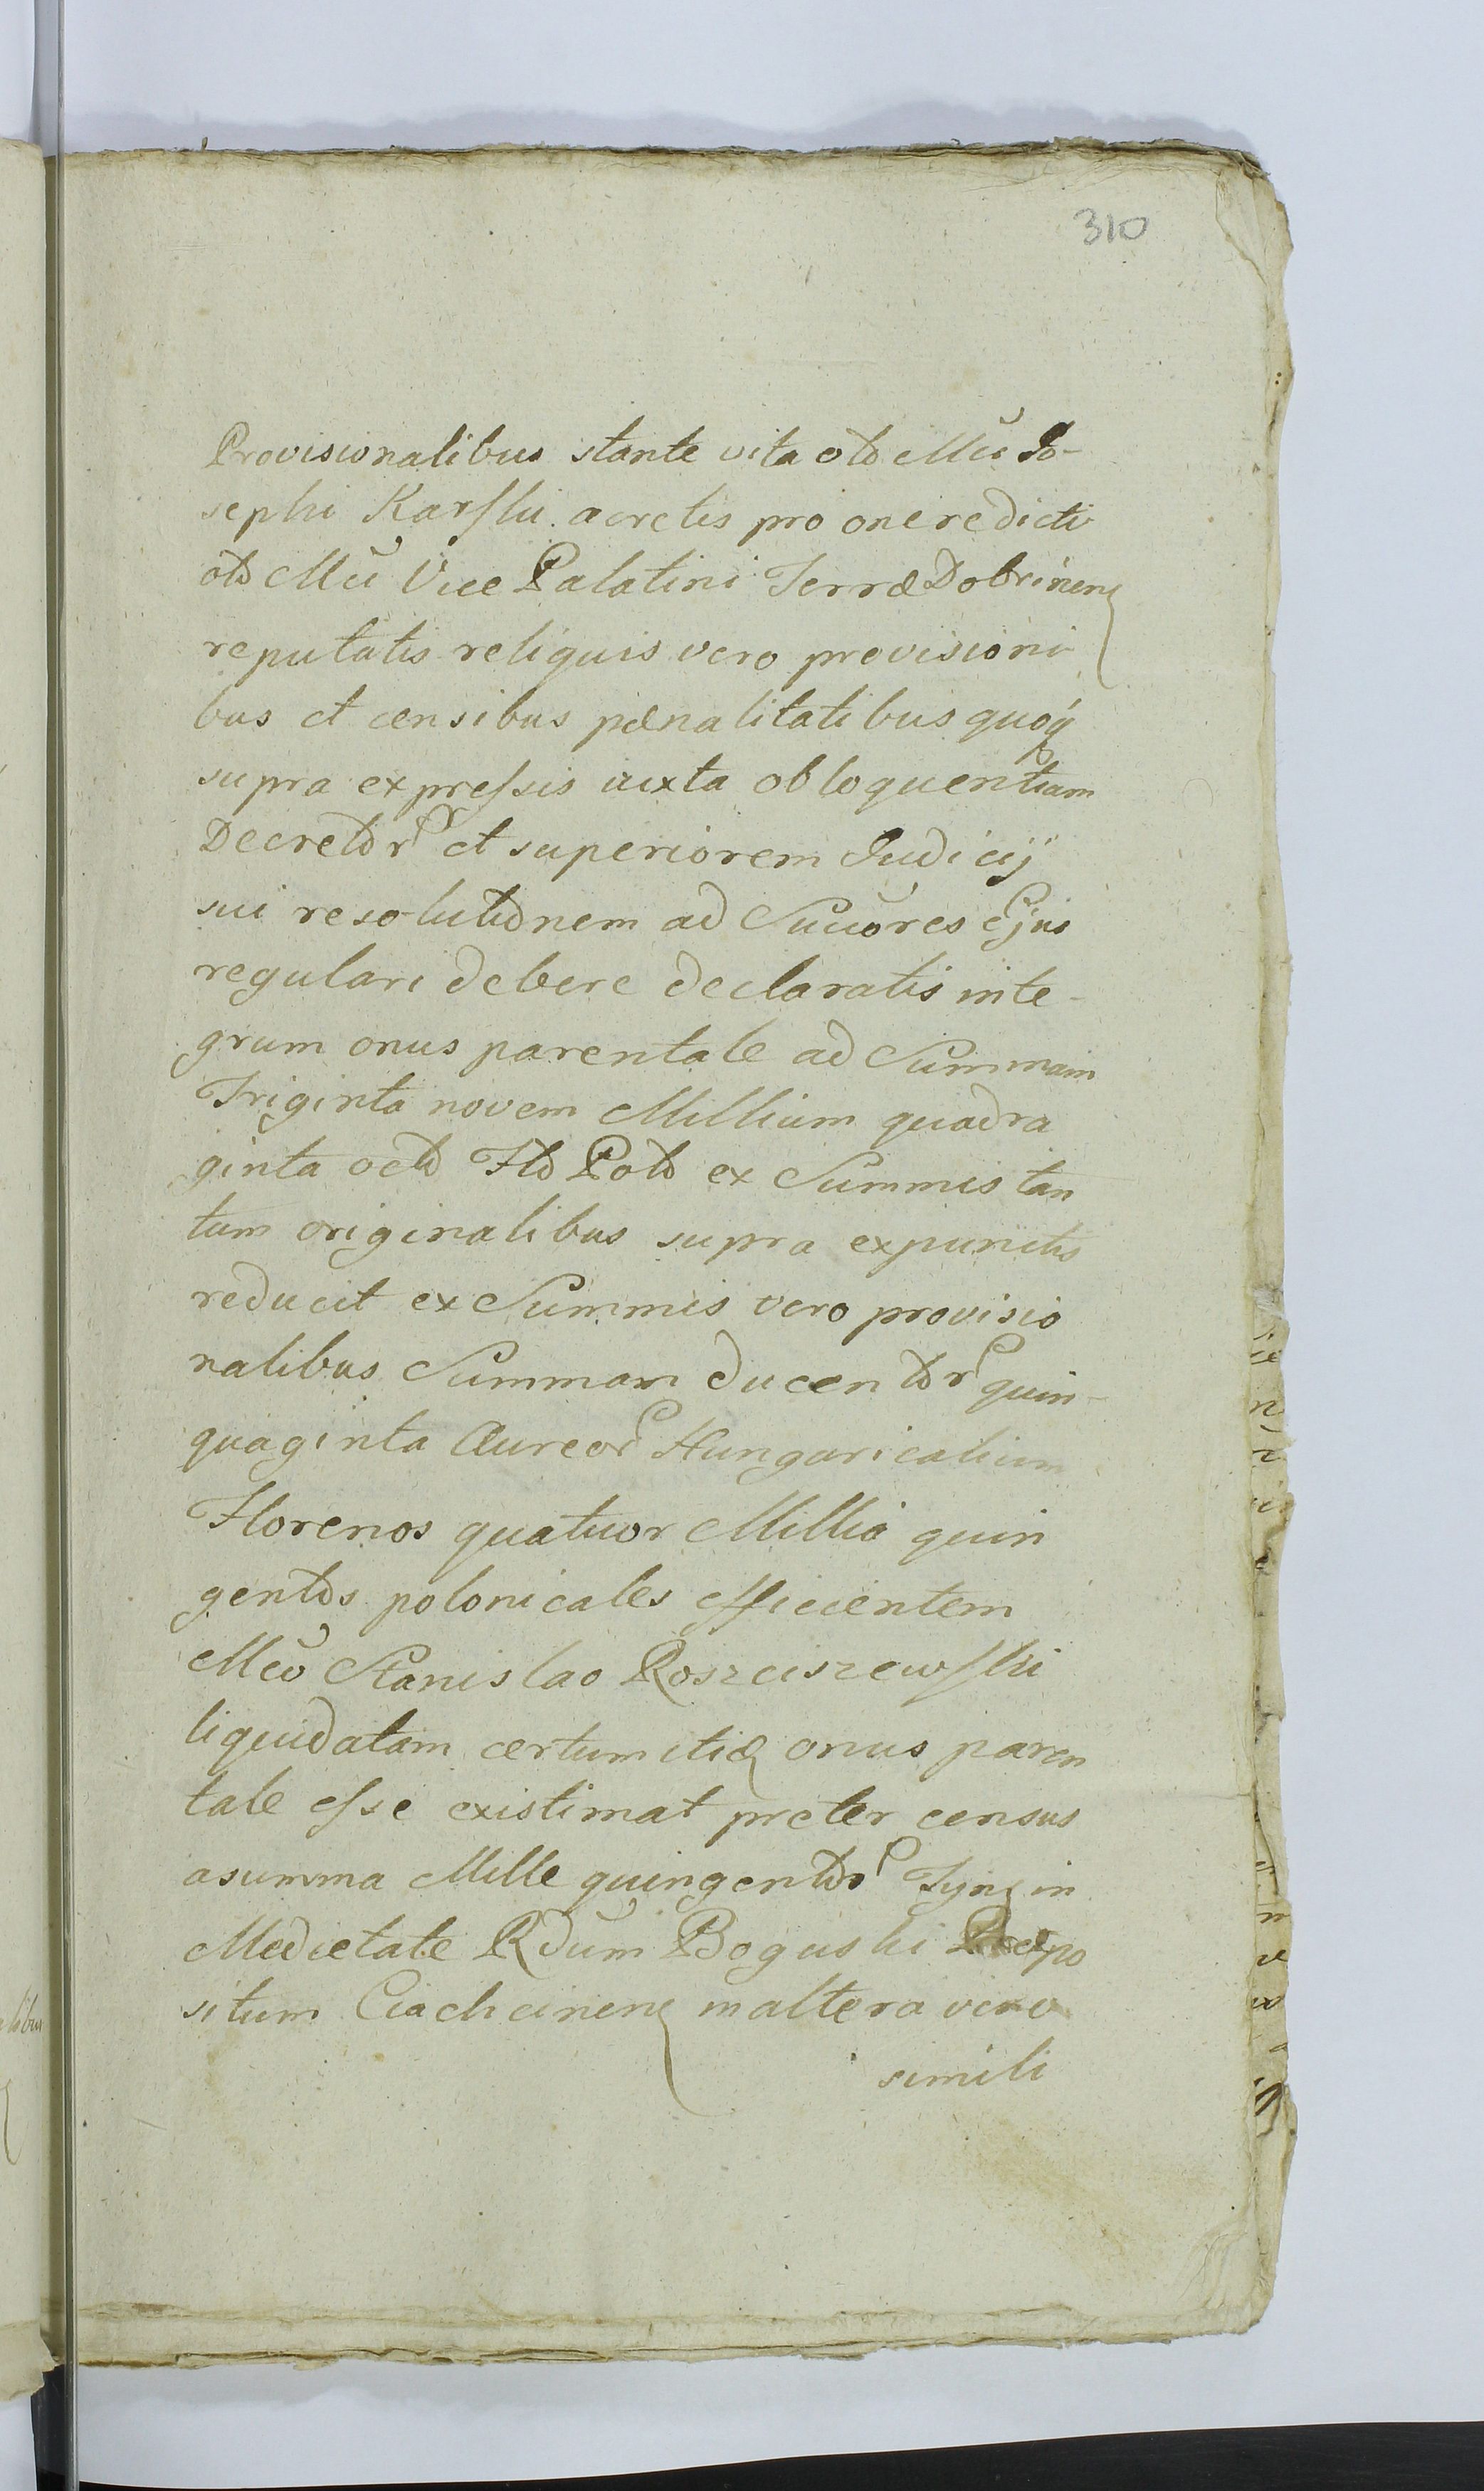 310
Provisionalibus stante vita olo Mci Jo-
sephi Karſki acretis pro onere dicti
olo Mci Vice Palatini Terræ Dobrinens
reputatis reliquis vero provisioni
bus et censibus pænalitatibus quoq
supra expreſsis iuxta obloquentiam
Decretor et superiorem Judicij
sui resolutionem ad Succores Ejus
regulari debere declaratis inte-
grum onus parentale ad Summam
Triginta novem Millium quadra
ginta octo Flo Polo ex Summis tan
tum originalibus supra expunctis
reducit ex Summis vero provisio
nalibus Summam ducentor quin-
quaginta Aureor Hungaricalium
Florenos quatuor Millia quin
gentos polonicales efficientem
Mco Stanislao Roszciszewſki
liquidatam certum itidę onus paren
tale eſse existimat preter census
a summa Mille quingentor Tynf in
Medietate Rdum Boguski Præpo
situm Ciachcinens in altera vero
simili